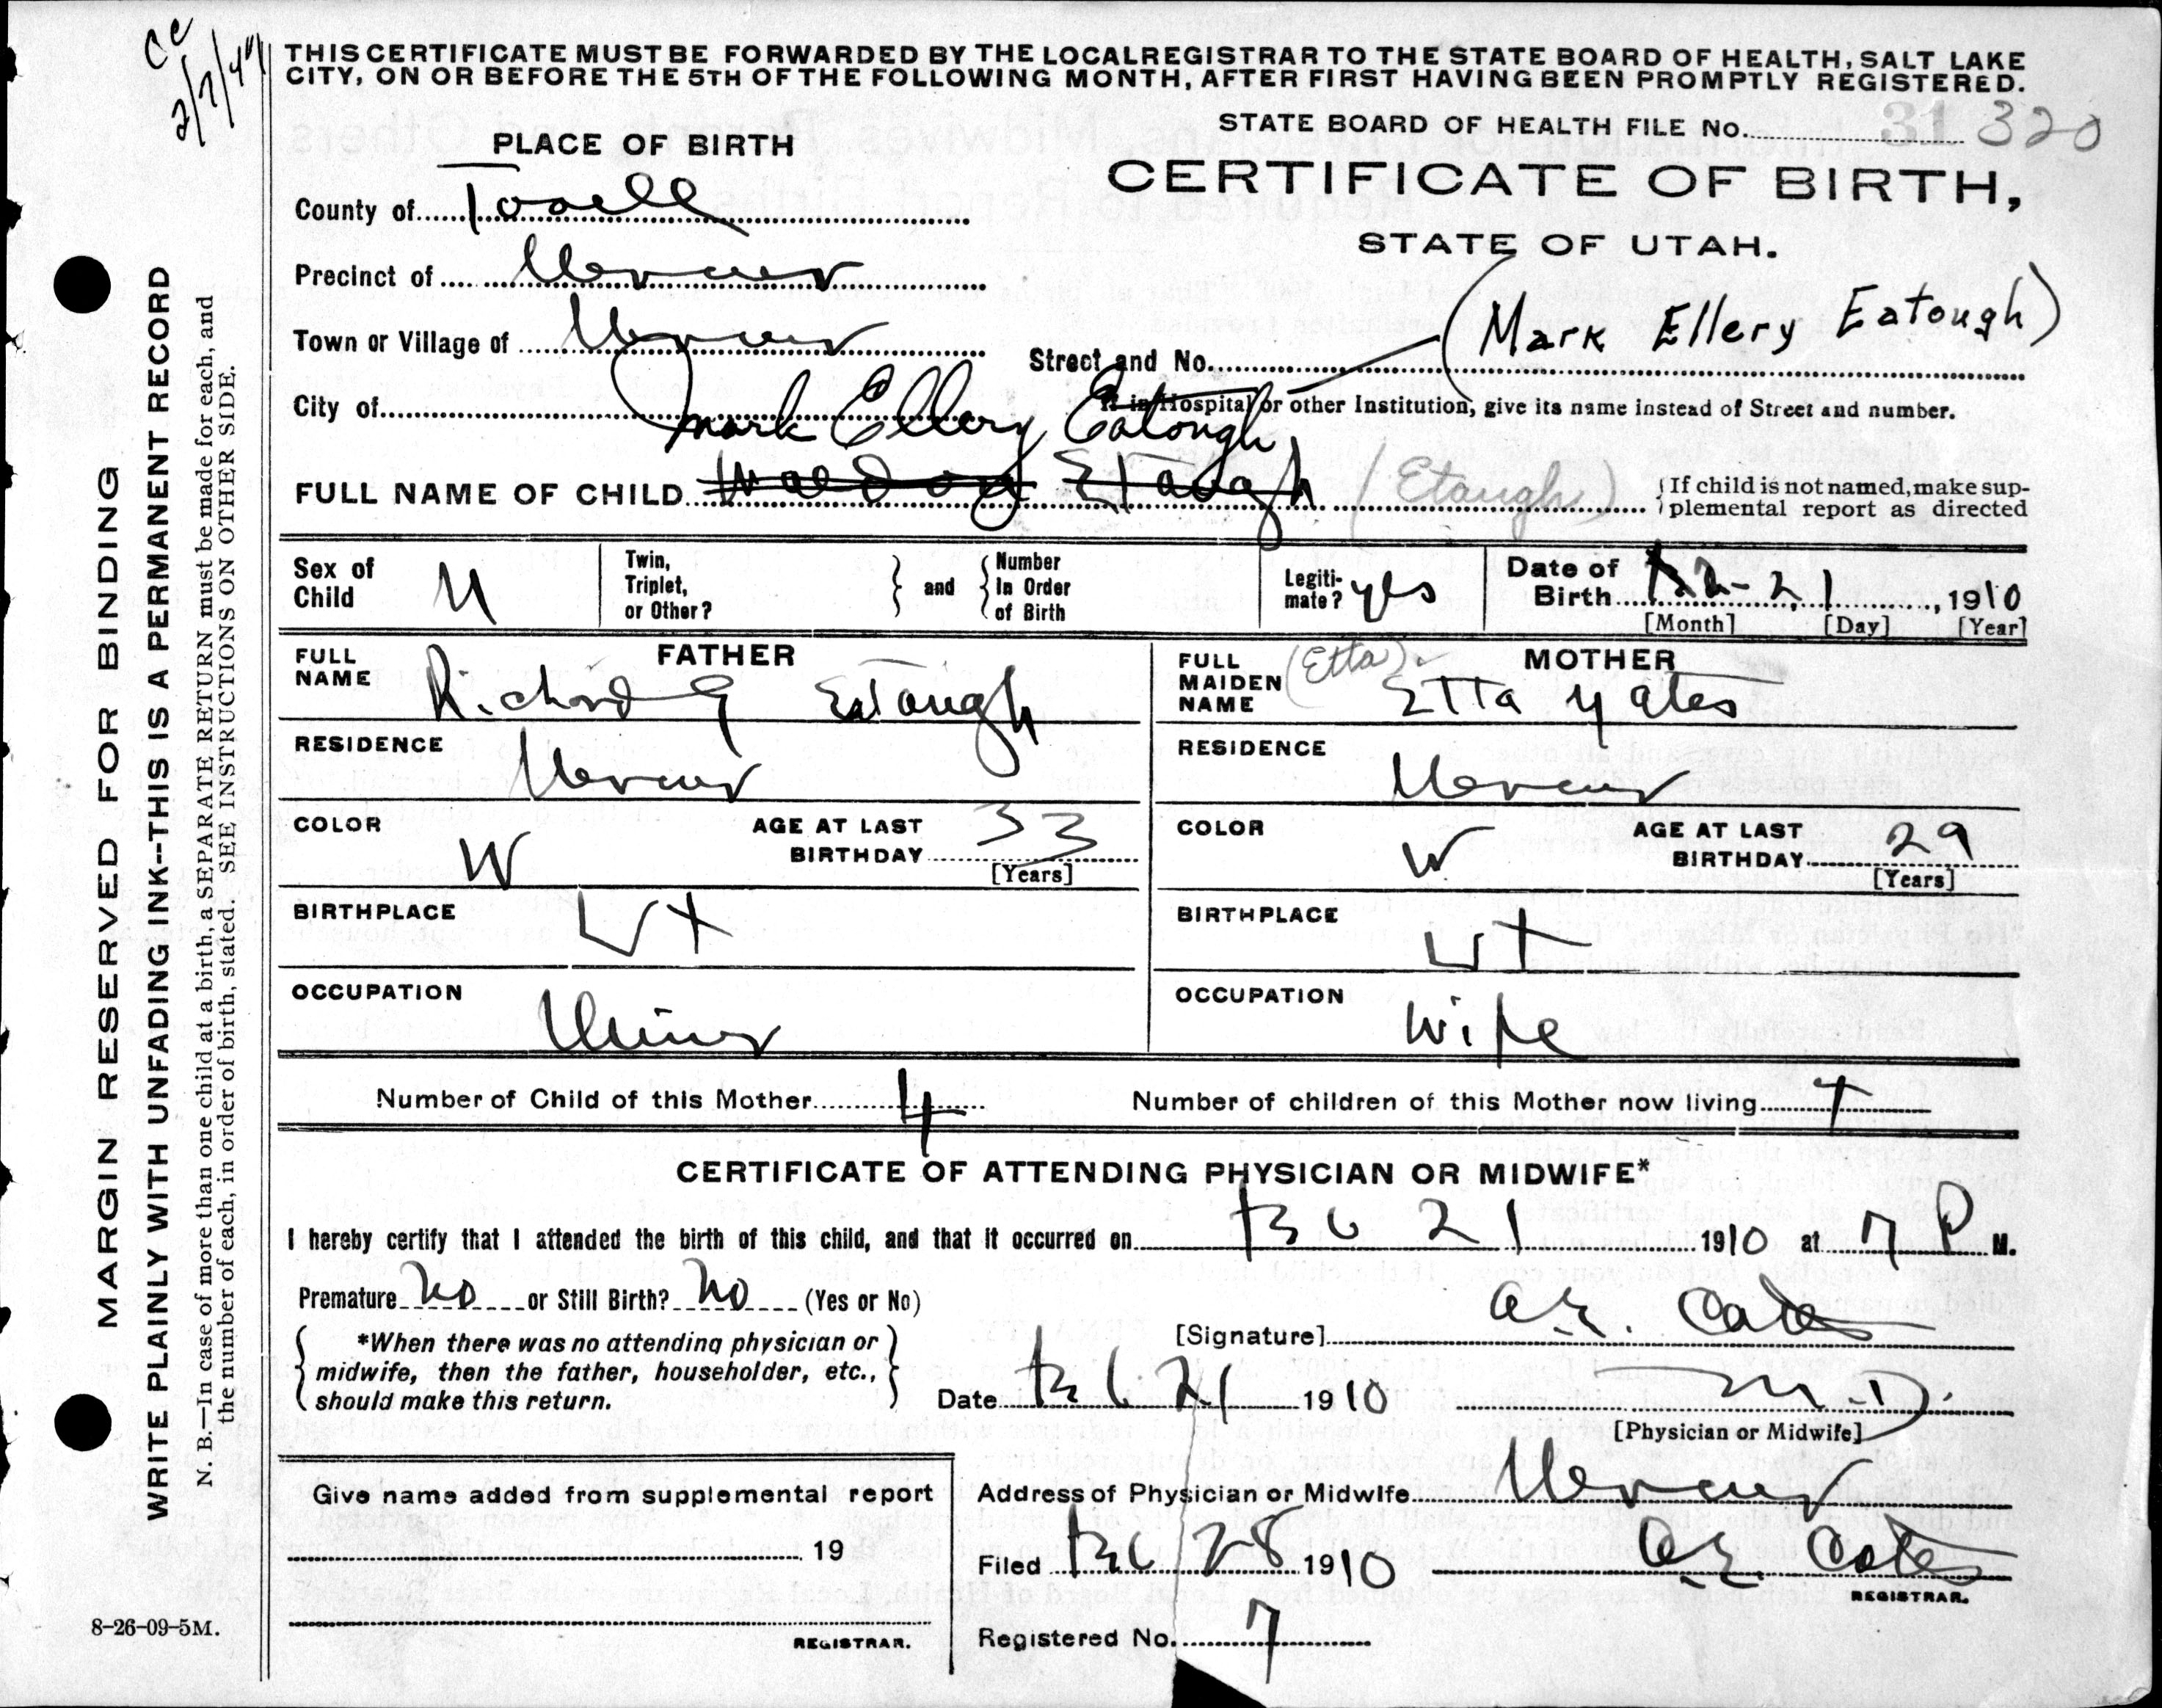 Cc
2/7/49
THIS CERTIFICATE MUST BE FORWARDED BY THE LOCAL REGISTRAR TO THE STATE BOARD OF HEALTH, SALT LAKE
CITY, ON OR BEFORE THE 5TH OF THE FOLLOWING MONTH, AFTER FIRST HAVING BEEN PROMPTLY REGISTERED.
STATE BOARD OF HEALTH FILE No. 31 320
PLACE OF BIRTH
CERTIFICATE OF BIRTH,
STATE OF UTAH.
County of Tooele
Precinct of Mercur
Town or Village of Mercur
Street and No.
(Mark Ellery Eatough)
City of
If in Hospital or other Institution, give its name instead of Street and number.
Mark Ellery Eatough
FULL NAME OF CHILD Etaugh (Etaugh) {If child is not named, make sup-
plemental report as directed
Sex of Child M
Twin, Triplet, or Other? } and { Number In Order of Birth
Legiti-mate? yes
Date of Birth 12-21, 1910
[Month] [Day] [Year]
FATHER
FULL NAME Richard G Eatough
RESIDENCE Mercur
COLOR W
AGE AT LAST BIRTHDAY 33
[Years]
BIRTHPLACE Ut
OCCUPATION Miner
MOTHER
FULL MAIDEN NAME (Etta) Etta Yates
RESIDENCE Mercur
COLOR W
AGE AT LAST BIRTHDAY 29
[Years]
BIRTHPLACE Ut
OCCUPATION Wife
Number of Child of this Mother 4
Number of children of this Mother now living 4
CERTIFICATE OF ATTENDING PHYSICIAN OR MIDWIFE*
I hereby certify that I attended the birth of this child, and that it occurred on Dec 21 1910 at 7 P M.
Premature No or Still Birth? No (Yes or No)
*When there was no attending physician or
midwife, then the father, householder, etc.,
should make this return.
[Signature]
Date Dec 21 1910
M.D.
[Physician or Midwife]
Give name added from supplemental report
19
REGISTRAR.
Address of Physician or Midwife Mercur
Filed Dec 28 1910
REGISTRAR.
Registered No. 7
8-26-09-5M.
MARGIN RESERVED FOR BINDING
WRITE PLAINLY WITH UNFADING INK--THIS IS A PERMANENT RECORD
N. B.—In case of more than one child at a birth, a SEPARATE RETURN must be made for each, and
the number of each, in order of birth, stated. SEE INSTRUCTIONS ON OTHER SIDE.